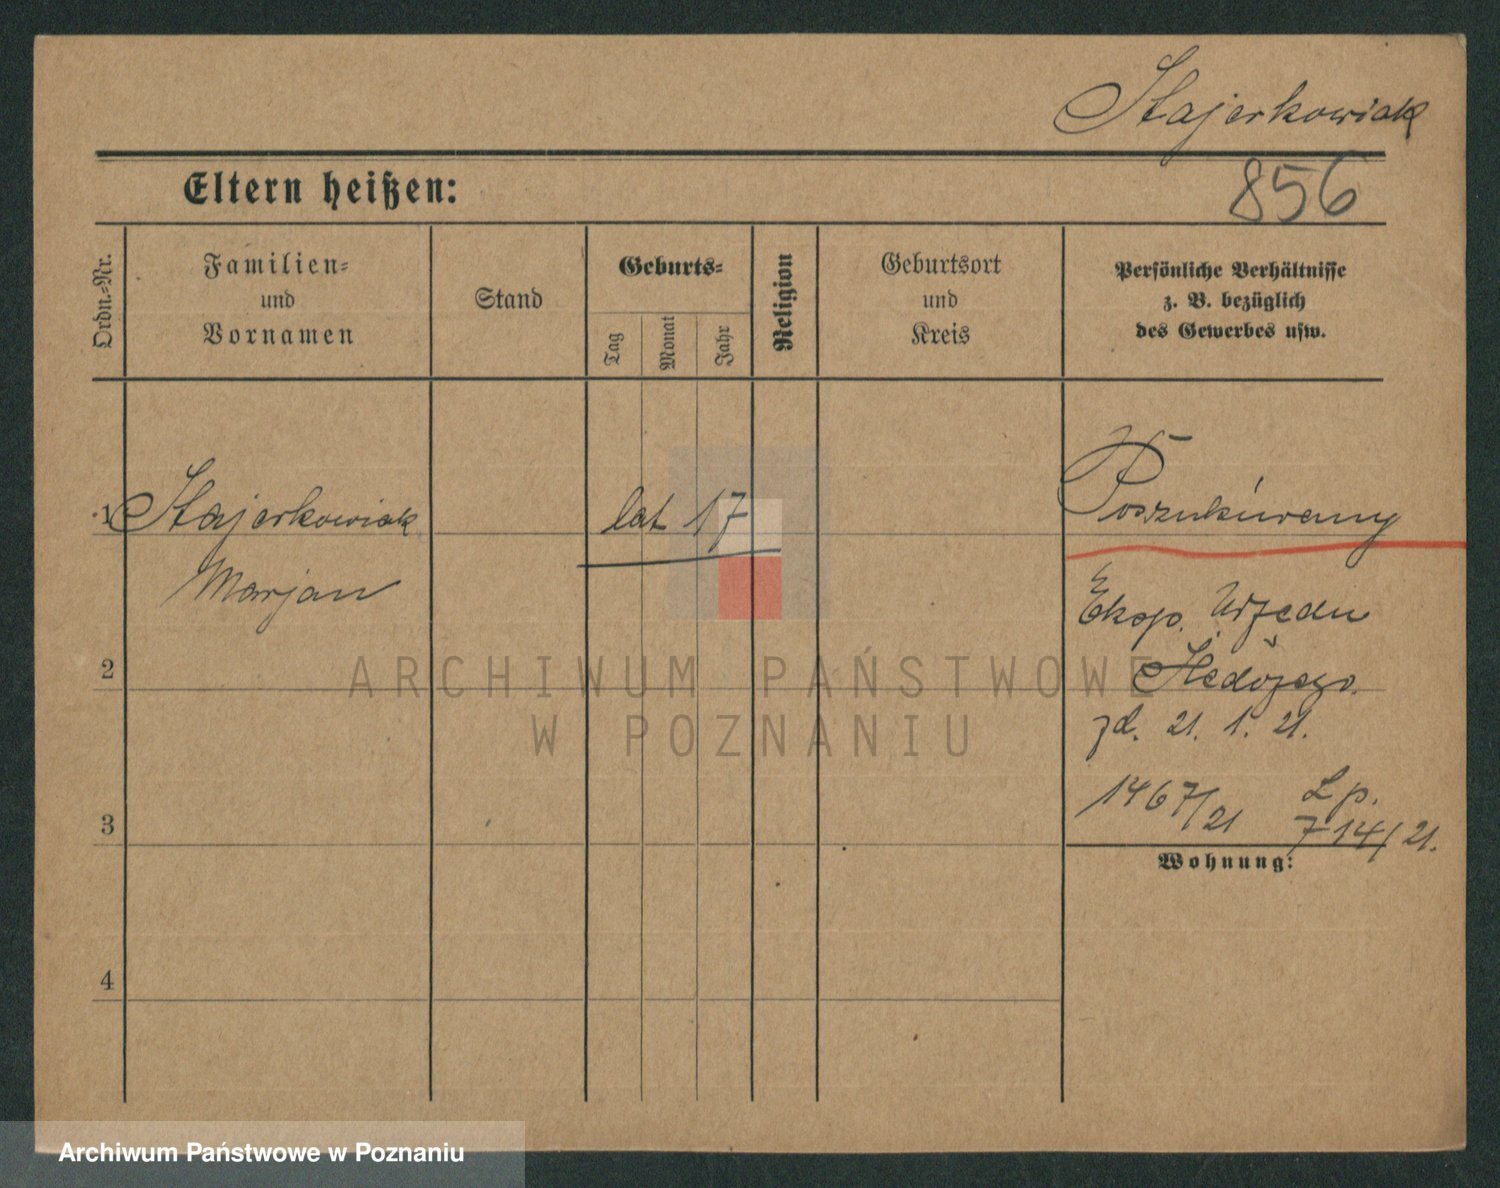 Stajerkowiak
Eltern heißen:
856
Ordn.-Nr.
Familien-
und
Vornamen
Stand
Geburts-
Tag
Monat
Jahr
Religion
Geburtsort
und
Kreis
Persönliche Verhältnisse
z. B. bezüglich
des Gewerbes usw.
1 Stajerkowiak
Marjan
lat 17
Poszukiwany
Eksp. Urzędu
Śledczego.
zd. 21. 1. 21.
1467/21
Lp.
714/21.
2
3
4
Wohnung:
ARCHIWUM PAŃSTWOWE
W POZNANIU
Archiwum Państwowe w Poznaniu